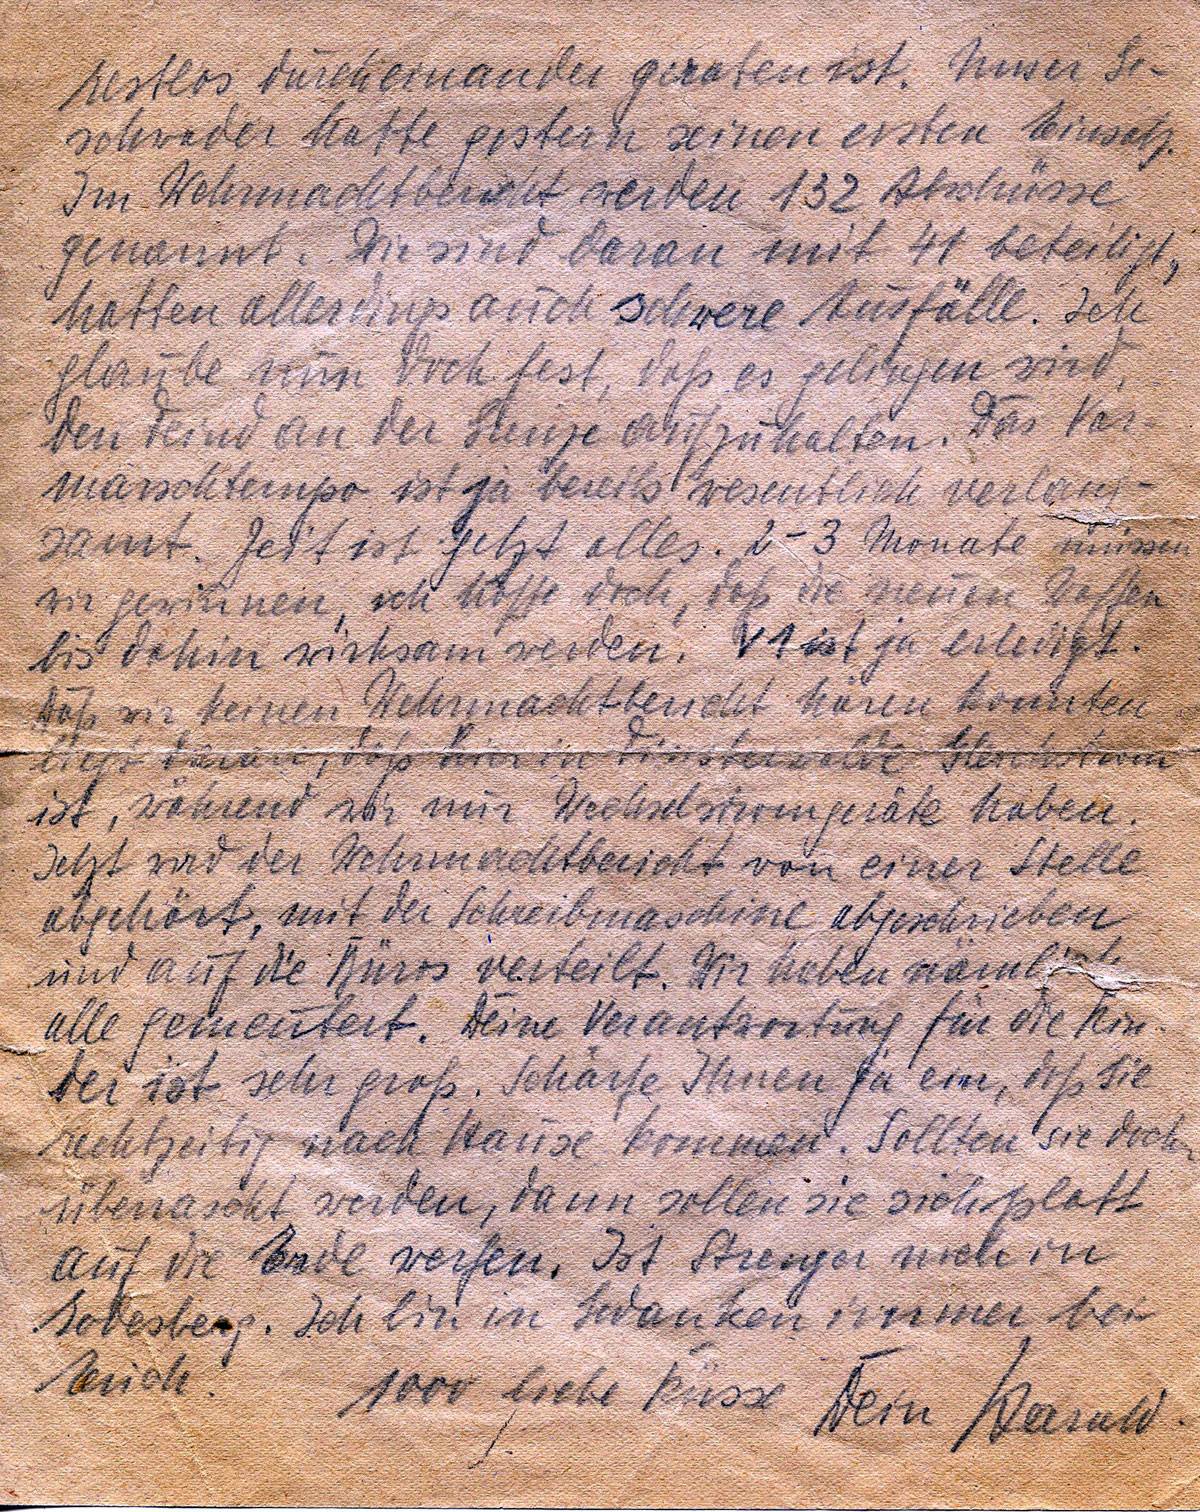 restlos durcheinander geraten ist. Unser Ge-
schwader hatte gestern seinen ersten Einsatz.
Im Wehrmachtbericht werden 132 Abschüsse
genannt. Wir sind daran mit 41 beteiligt,
hatten allerdings auch schwere Ausfälle. Ich
glaube nun doch fest, daß es gelingen wird,
den Feind an der Grenze aufzuhalten. Das Vor-
marschtempo ist ja bereits wesentlich verlang-
samt. Zeit ist jetzt alles. 2-3 Monate müssen
wir gewinnen, ich hoffe doch, daß die neuen Waffen
bis dahin wirksam werden. V1 ist ja erledigt.
Daß wir keinen Wehrmachtbericht hören konnten
liegt daran, daß hier in Finsterwalde Gleichstrom
ist, während wir nur Wechselstromgeräte haben.
Jetzt wird der Wehrmachtbericht von einer Stelle
abgehört, mit der Schreibmaschine abgeschrieben
und auf die Büros verteilt. Wir haben nämlich
alle gemeutert. Deine Verantwortung für die Kin-
der ist sehr groß. Schärfe Ihnen ja ein, daß sie
rechtzeitig nach Hause kommen. Sollten sie doch
überrascht werden, dann sollen sie sich platt
auf die Erde werfen. Ist Strenger noch in
Godesberg. Ich bin in Gedanken immer bei
Euch.
1000 liebe Küsse Dein Harald.